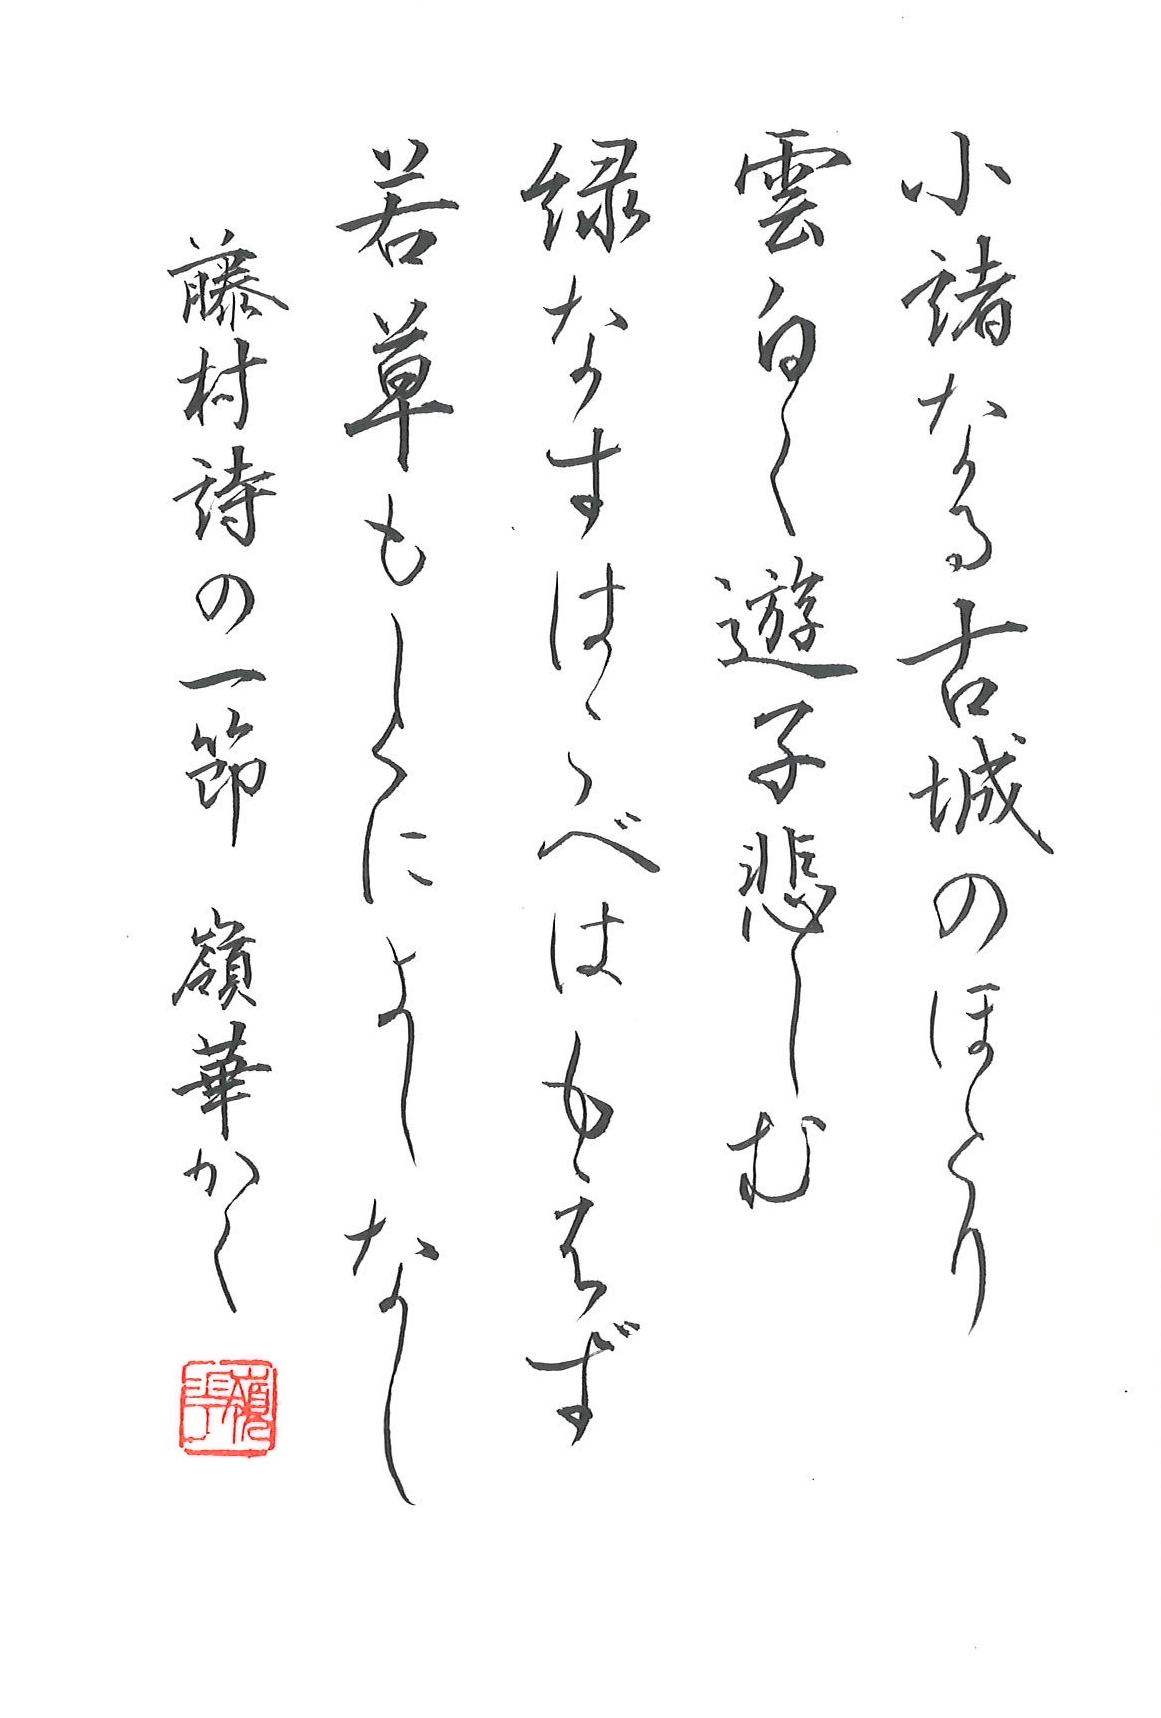 小諸なる古城のほとり
雲白く遊子悲しむ
緑なすはこべはもえず
若草もしくによしなし
藤村詩の一節 嶺華かく